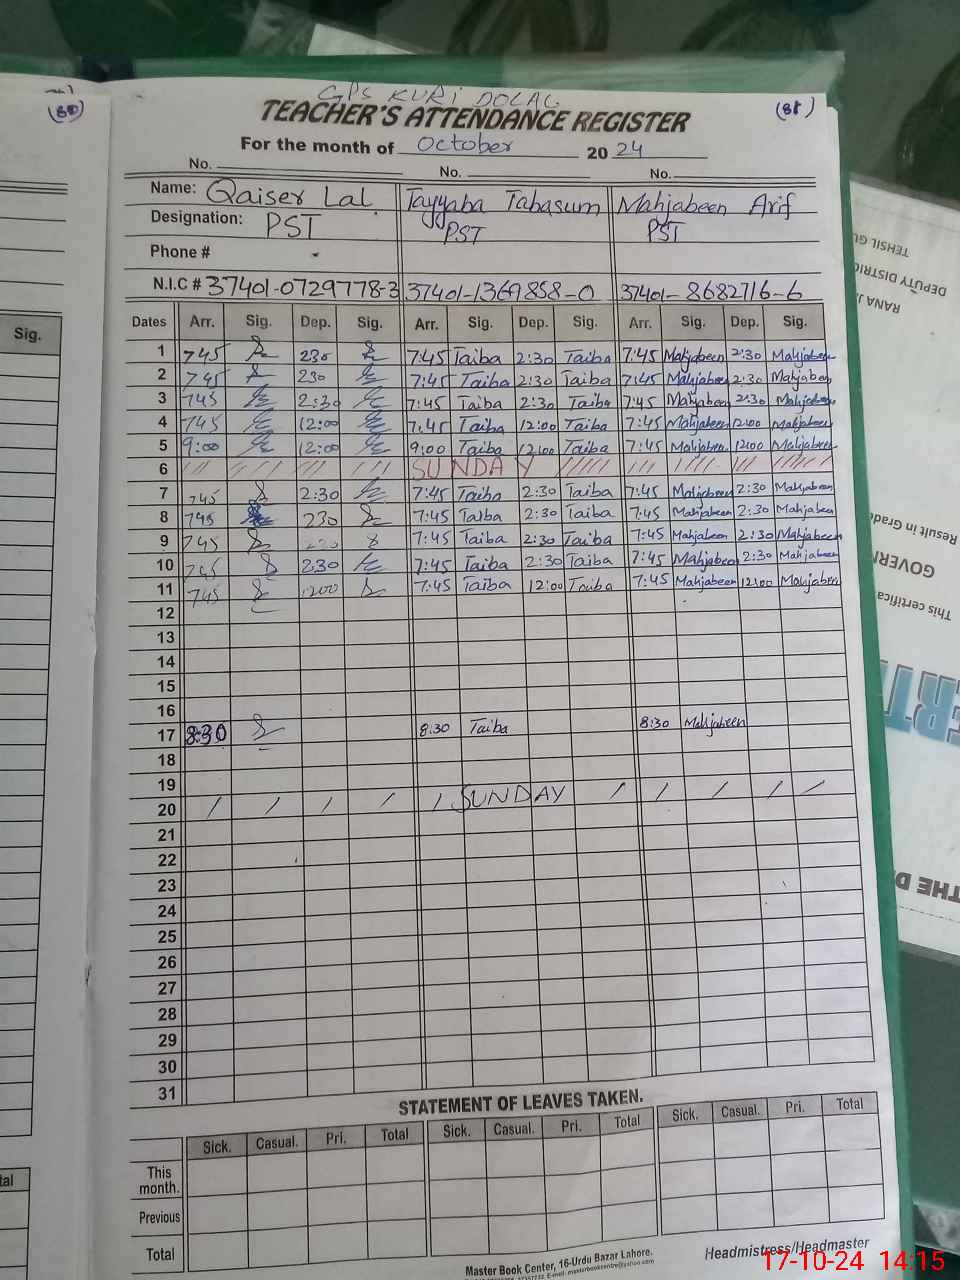 (88)
GPS KURI DOLAL
(81)
TEACHER'S ATTENDANCE REGISTER
For the month of October 2024
No. No. No.
Name: Qaiser Lal Tayyaba Tabasum Mahjabeen Arif
Designation: PST PST PST
Phone #
N.I.C # 37401-0729778-3 37401-1369858-0 37401-8682716-6
Sig. Dates Arr. Sig. Dep. Sig. Arr. Sig. Dep. Sig. Arr. Sig. Dep. Sig.
1 745 230 7:45 Taiba 2:30 Taiba 7:45 Mahjabeen 2:30 Mahjabeen
2 745 230 7:45 Taiba 2:30 Taiba 7:45 Mahjabeen 2:30 Mahjabeen
3 745 2:30 7:45 Taiba 2:30 Taiba 7:45 Mahjabeen 2:30 Mahjabeen
4 745 12:00 7:45 Taiba 12:00 Taiba 7:45 Mahjabeen 12:00 Mahjabeen
5 9:00 12:00 9:00 Taiba 12:00 Taiba 7:45 Mahjabeen 12:00 Mahjabeen
6 SUNDAY
7 745 2:30 7:45 Taiba 2:30 Taiba 7:45 Mahjabeen 2:30 Mahjabeen
8 745 230 7:45 Taiba 2:30 Taiba 7:45 Mahjabeen 2:30 Mahjabeen
9 745 230 7:45 Taiba 2:30 Taiba 7:45 Mahjabeen 2:30 Mahjabeen
10 745 230 7:45 Taiba 2:30 Taiba 7:45 Mahjabeen 2:30 Mahjabeen
11 745 1200 7:45 Taiba 12:00 Taiba 7:45 Mahjabeen 12:00 Mahjabeen
12
13
14
15
16
17 8:30 8:30 Taiba 8:30 Mahjabeen
18
19
20 SUNDAY
21
22
23
24
25
26
27
28
29
30
31
STATEMENT OF LEAVES TAKEN.
Sick. Casual. Pri. Total Sick. Casual. Pri. Total Sick. Casual. Pri. Total
This month.
Previous
Total
Headmistress/Headmaster
Master Book Center, 16-Urdu Bazar Lahore.
TEHSIL GU
DEPUTY DISTRIC
RANA J
Result in Grade
GOVERN
This certific
ERT
THE D
17-10-24 14:15